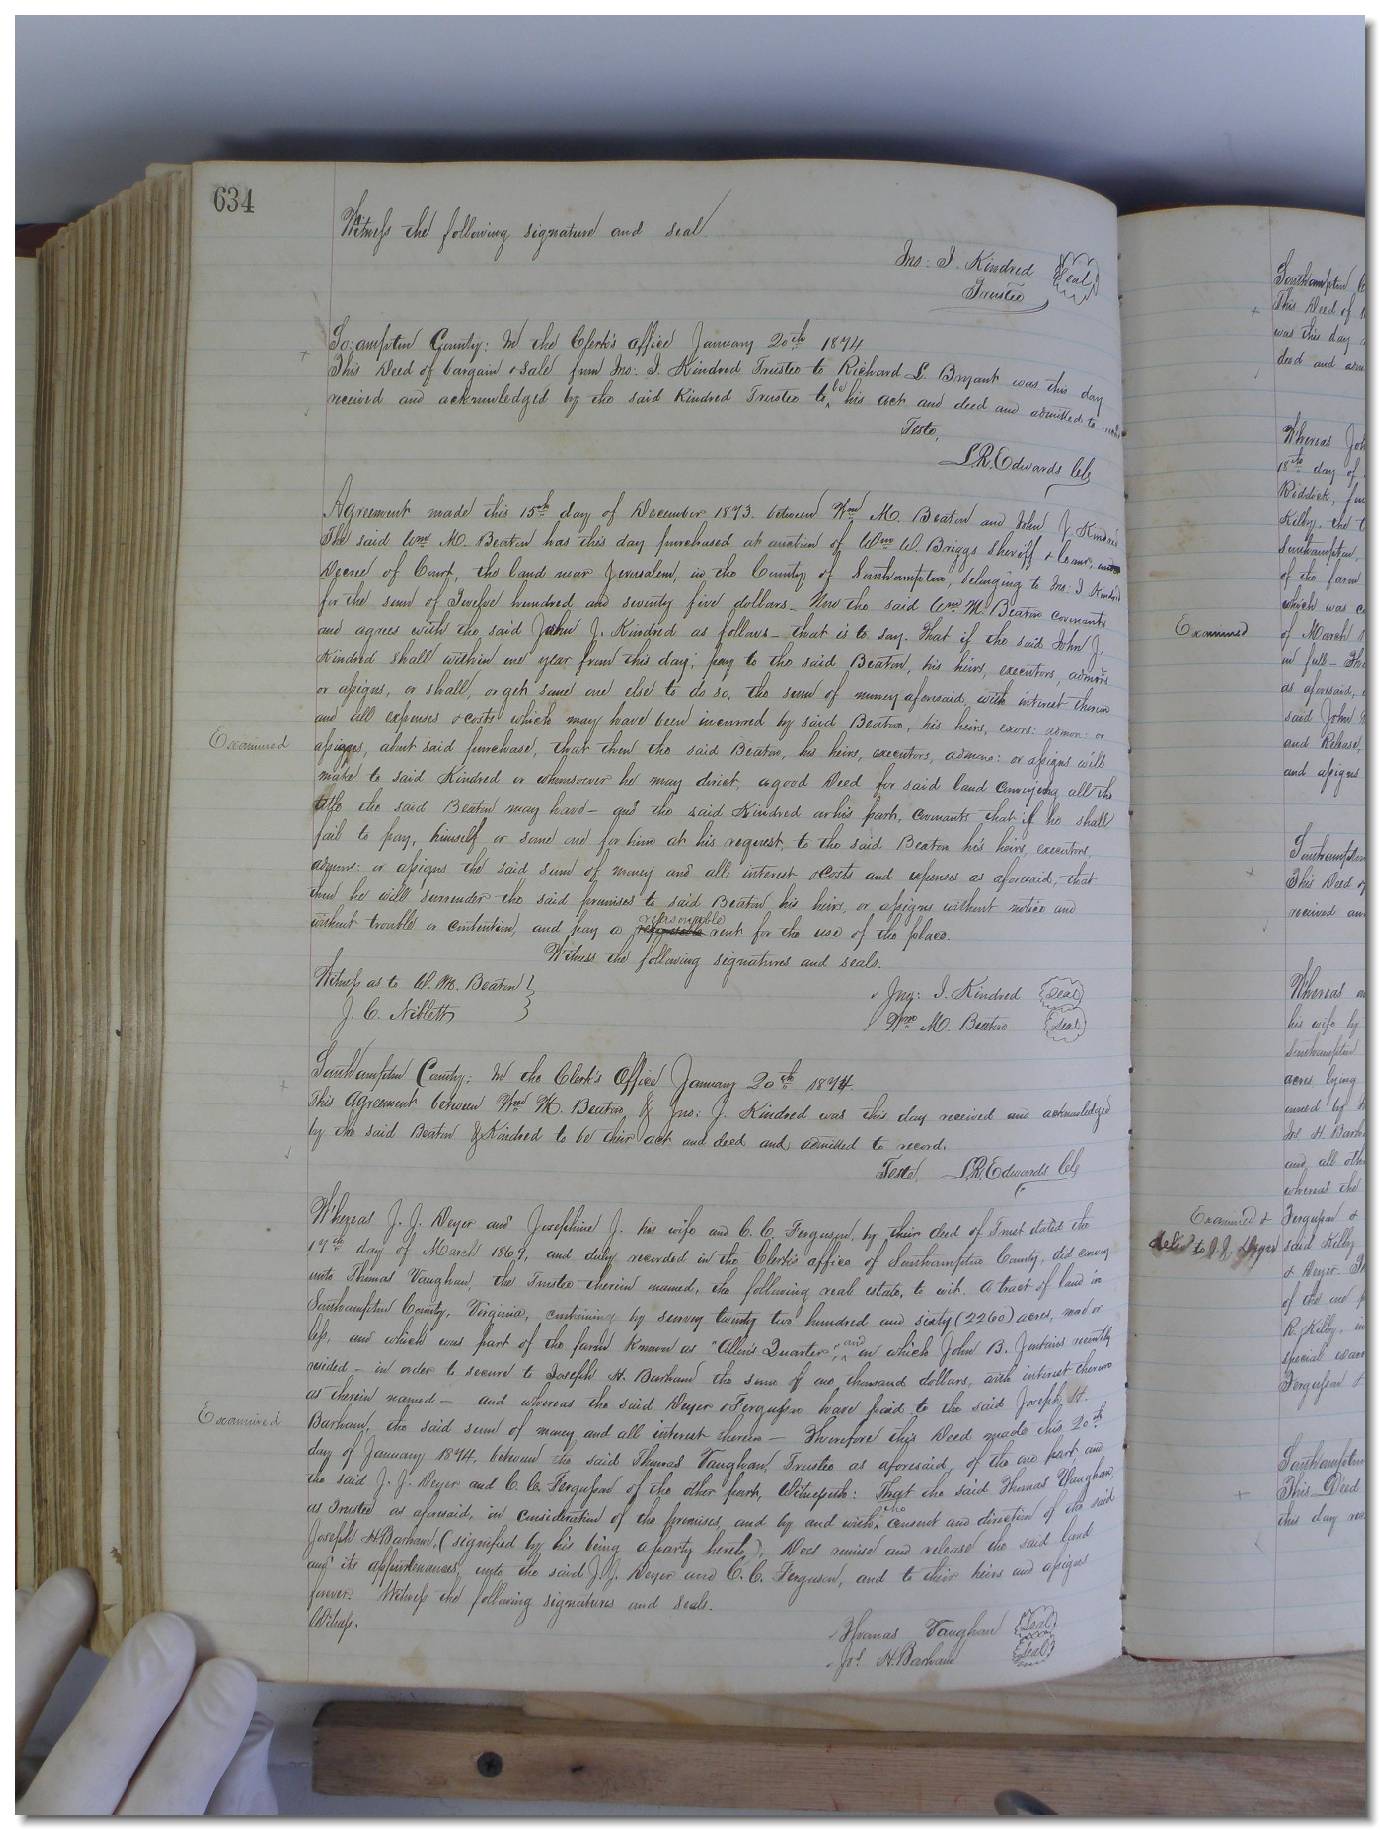 634
Witness the following signature and seal
Jno: J. Kindred Seal
Trustee
So:ampton County: In the Clerk's office January 20th 1874
This Deed of bargain & sale from Jno: J. Kindred Trustee to Richard L. Bryant was this day
received and acknowledged by the said Kindred Trustee to be his act and deed and admitted to
Teste,
L.R. Edwards Clk
Agreement made this 15th day of December 1873. between Wm M. Beaton and John J. Kindred
The said Wm M. Beaton has this day purchased at auction of Wm W. Briggs Sheriff &
Decree of Court, the land near Jerusalem, in the County of Southampton, belonging to Jno. J. Kindred
for the sum of Twelve hundred and seventy five dollars - Now the said Wm M. Beaton covenants
and agrees with the said John J. Kindred as follows - that is to say. That if the said John J.
Kindred shall within one year from this day, pay to the said Beaton, his heirs, executors, admors
or assigns, or shall, or get some one else to do so, the sum of money aforesaid, with interest thereon
and all expenses & costs which may have been incurred by said Beaton, his heirs, exors: admor: or
Examined
assigns, about said purchase, that then the said Beaton, his heirs, executors, admors: or assigns will
make to said Kindred or whomsoever he may direct, a good Deed for said land conveying all the
title the said Beaton may have - and the said Kindred on his part, covenants that if he shall
fail to pay, himself or some one for him at his request, to the said Beaton his heirs, executors,
admors: or assigns the said sum of money and all interest & costs and expenses as aforesaid, that
then he will surrender the said premises to said Beaton his heirs, or assigns without notice and
without trouble or contention, and pay a reasonable rent for the use of the place.
Witness the following signatures and seals.
Witness as to W. M. Beaton
J. C. Niblett
Jno: J. Kindred Seal
Wm M. Beaton Seal
Southampton County: In the Clerk's Office January 20th 1874
This Agreement between Wm M. Beaton & Jno: J. Kindred was this day received and acknowledged
by the said Beaton & Kindred to be their act and deed and admitted to record.
Teste, L.R. Edwards Clk
Whereas J. J. Deyer and Josephine J. his wife and C. C. Ferguson, by their deed of Trust dated the
17th day of March 1869, and duly recorded in the Clerk's office of Southampton County, did convey
unto Thomas Vaughan, the Trustee therein named, the following real estate, to wit. A tract of land in
Southampton County, Virginia, containing by survey twenty two hundred and sixty (2260) acres, more or
less, and which was part of the farm known as "Allen's Quarter", and on which John B. Jenkins recently
resided - in order to secure to Joseph H. Barham the sum of one thousand dollars, with interest thereon
as therein named - and whereas the said Deyer & Ferguson have paid to the said Joseph H.
Examined
Barham, the said sum of money and all interest thereon - Therefore this Deed made this 20th
day of January 1874, between the said Thomas Vaughan, Trustee as aforesaid, of the one part, and
the said J. J. Deyer and C. C. Ferguson of the other part, Witnesseth: That the said Thomas Vaughan,
as Trustee as aforesaid, in consideration of the premises, and by and with the consent and direction of the said
Joseph H. Barham, (signified by his being a party hereto), Does remise and release the said land
and its appurtenances, unto the said J. J. Deyer and C. C. Ferguson, and to their heirs and assigns
forever. Witness the following signatures and seals.
Witness.
Thomas Vaughan Seal
Jos. H. Barham Seal
Southampton
This Deed of
was this day
deed and
Whereas
18th day of
Riddick,
Kilby, the
Southampton,
of the farm
which was
Examined
of March
in full -
as aforesaid,
said John
and Release,
and assigns
Southampton
This Deed
received
Whereas
his wife by
Southampton
acres lying
owned by
Jos. H. Barham
and all
whereas the
Examined &
Ferguson &
said Kilby
& Deyer.
of the one
R. Kilby,
special
Ferguson &
Southampton
This Deed
this day